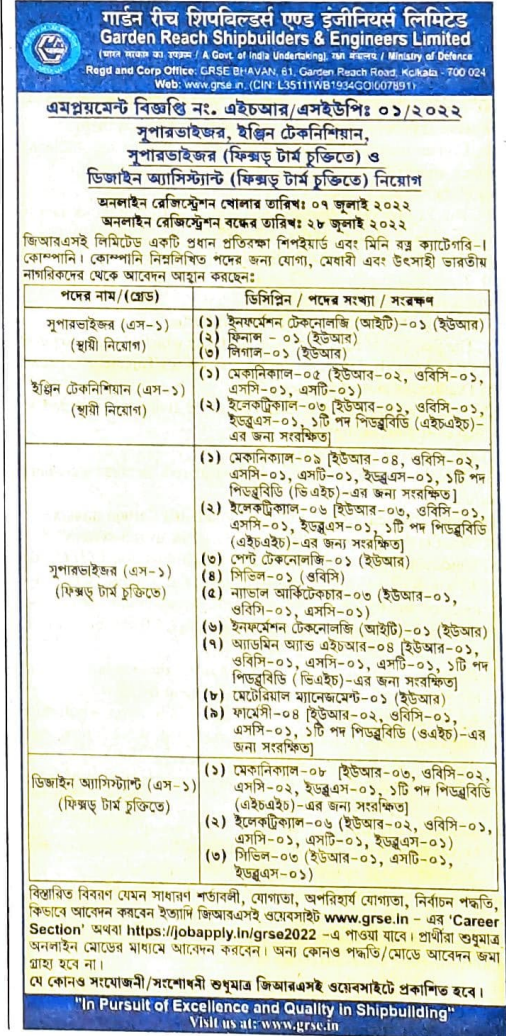 गार्डन रीच शिपबिल्डर्स एण्ड इंजीनियर्स लिमिटेड
Garden Reach Shipbuilders & Engineers Limited
(भारत सरकार का उपक्रम / A Govt. of India Undertaking), रक्षा मंत्रालय / Ministry of Defence
Regd and Corp Office: GRSE BHAVAN, 61, Garden Reach Road, Kolkata - 700 024
Web: www.grse.in, (CIN: L35111WB1934GOI007891)
এমপ্লয়মেন্ট বিজ্ঞপ্তি নং. এইচআর/এসইউপিঃ ০১/২০২২
সুপারভাইজর, ইঞ্জিন টেকনিশিয়ান,
সুপারভাইজর (ফিক্সড্ টার্ম চুক্তিতে) ও
ডিজাইন অ্যাসিস্ট্যান্ট (ফিক্সড্ টার্ম চুক্তিতে) নিয়োগ
অনলাইন রেজিস্ট্রেশন খোলার তারিখঃ ০৭ জুলাই ২০২২
অনলাইন রেজিস্ট্রেশন বন্ধের তারিখঃ ২৮ জুলাই ২০২২
জিআরএসই লিমিটেড একটি প্রধান প্রতিরক্ষা শিপইয়ার্ড এবং মিনি রত্ন ক্যাটেগরি-I
কোম্পানি। কোম্পানি নিম্নলিখিত পদের জন্য যোগ্য, মেধাবী এবং উৎসাহী ভারতীয়
নাগরিকদের থেকে আবেদন আহ্বান করছেনঃ
পদের নাম/(গ্রেড)
ডিসিপ্লিন / পদের সংখ্যা / সংরক্ষণ
সুপারভাইজর (এস-১)
(স্থায়ী নিয়োগ)
(১) ইনফর্মেশন টেকনোলজি (আইটি)-০১ (ইউআর)
(২) ফিনান্স - ০১ (ইউআর)
(৩) লিগাল-০১ (ইউআর)
ইঞ্জিন টেকনিশিয়ান (এস-১)
(স্থায়ী নিয়োগ)
(১) মেকানিক্যাল-০৫ (ইউআর-০২, ওবিসি-০১,
এসসি-০১, এসটি-০১)
(২) ইলেকট্রিক্যাল-০৩ [ইউআর-০১, ওবিসি-০১,
ইডব্লুএস-০১, ১টি পদ পিডব্লুবিডি (এইচএইচ)-
এর জন্য সংরক্ষিত]
সুপারভাইজর (এস-১)
(ফিক্সড্ টার্ম চুক্তিতে)
(১) মেকানিক্যাল-০৯ [ইউআর-০৪, ওবিসি-০২,
এসসি-০১, এসটি-০১, ইডব্লুএস-০১, ১টি পদ
পিডব্লুবিডি (ভিএইচ)-এর জন্য সংরক্ষিত]
(২) ইলেকট্রিক্যাল-০৬ [ইউআর-০৩, ওবিসি-০১,
এসসি-০১, ইডব্লুএস-০১, ১টি পদ পিডব্লুবিডি
(এইচএইচ)-এর জন্য সংরক্ষিত]
(৩) পেন্ট টেকনোলজি-০১ (ইউআর)
(৪) সিভিল-০১ (ওবিসি)
(৫) ন্যাভাল আর্কিটেকচার-০৩ (ইউআর-০১,
ওবিসি-০১, এসসি-০১)
(৬) ইনফর্মেশন টেকনোলজি (আইটি)-০১ (ইউআর)
(৭) অ্যাডমিন অ্যান্ড এইচআর-০৪ [ইউআর-০১,
ওবিসি-০১, এসসি-০১, এসটি-০১, ১টি পদ
পিডব্লুবিডি (ভিএইচ)-এর জন্য সংরক্ষিত]
(৮) মেটেরিয়াল ম্যানেজমেন্ট-০১ (ইউআর)
(৯) ফার্মেসী-০৪ [ইউআর-০২, ওবিসি-০১,
এসসি-০১, ১টি পদ পিডব্লুবিডি (ওএইচ)-এর
জন্য সংরক্ষিত]
ডিজাইন অ্যাসিস্ট্যান্ট (এস-১)
(ফিক্সড্ টার্ম চুক্তিতে)
(১) মেকানিক্যাল-০৮ [ইউআর-০৩, ওবিসি-০২,
এসসি-০২, ইডব্লুএস-০১, ১টি পদ পিডব্লুবিডি
(এইচএইচ)-এর জন্য সংরক্ষিত]
(২) ইলেকট্রিক্যাল-০৬ (ইউআর-০২, ওবিসি-০১,
এসসি-০১, এসটি-০১, ইডব্লুএস-০১)
(৩) সিভিল-০৩ (ইউআর-০১, এসটি-০১,
ইডব্লুএস-০১)
বিস্তারিত বিবরণ যেমন সাধারণ শর্তাবলী, যোগ্যতা, অপরিহার্য যোগ্যতা, নির্বাচন পদ্ধতি,
কিভাবে আবেদন করবেন ইত্যাদি জিআরএসই ওয়েবসাইট www.grse.in - এর ‘Career
Section’ অথবা https://jobapply.in/grse2022 -এ পাওয়া যাবে। প্রার্থীরা শুধুমাত্র
অনলাইন মোডের মাধ্যমে আবেদন করবেন। অন্য কোনও পদ্ধতি/মোডে আবেদন জমা
গ্রাহ্য হবে না।
যে কোনও সংযোজনী/সংশোধনী শুধুমাত্র জিআরএসই ওয়েবসাইটে প্রকাশিত হবে।
"In Pursuit of Excellence and Quality in Shipbuilding"
Visit us at: www.grse.in